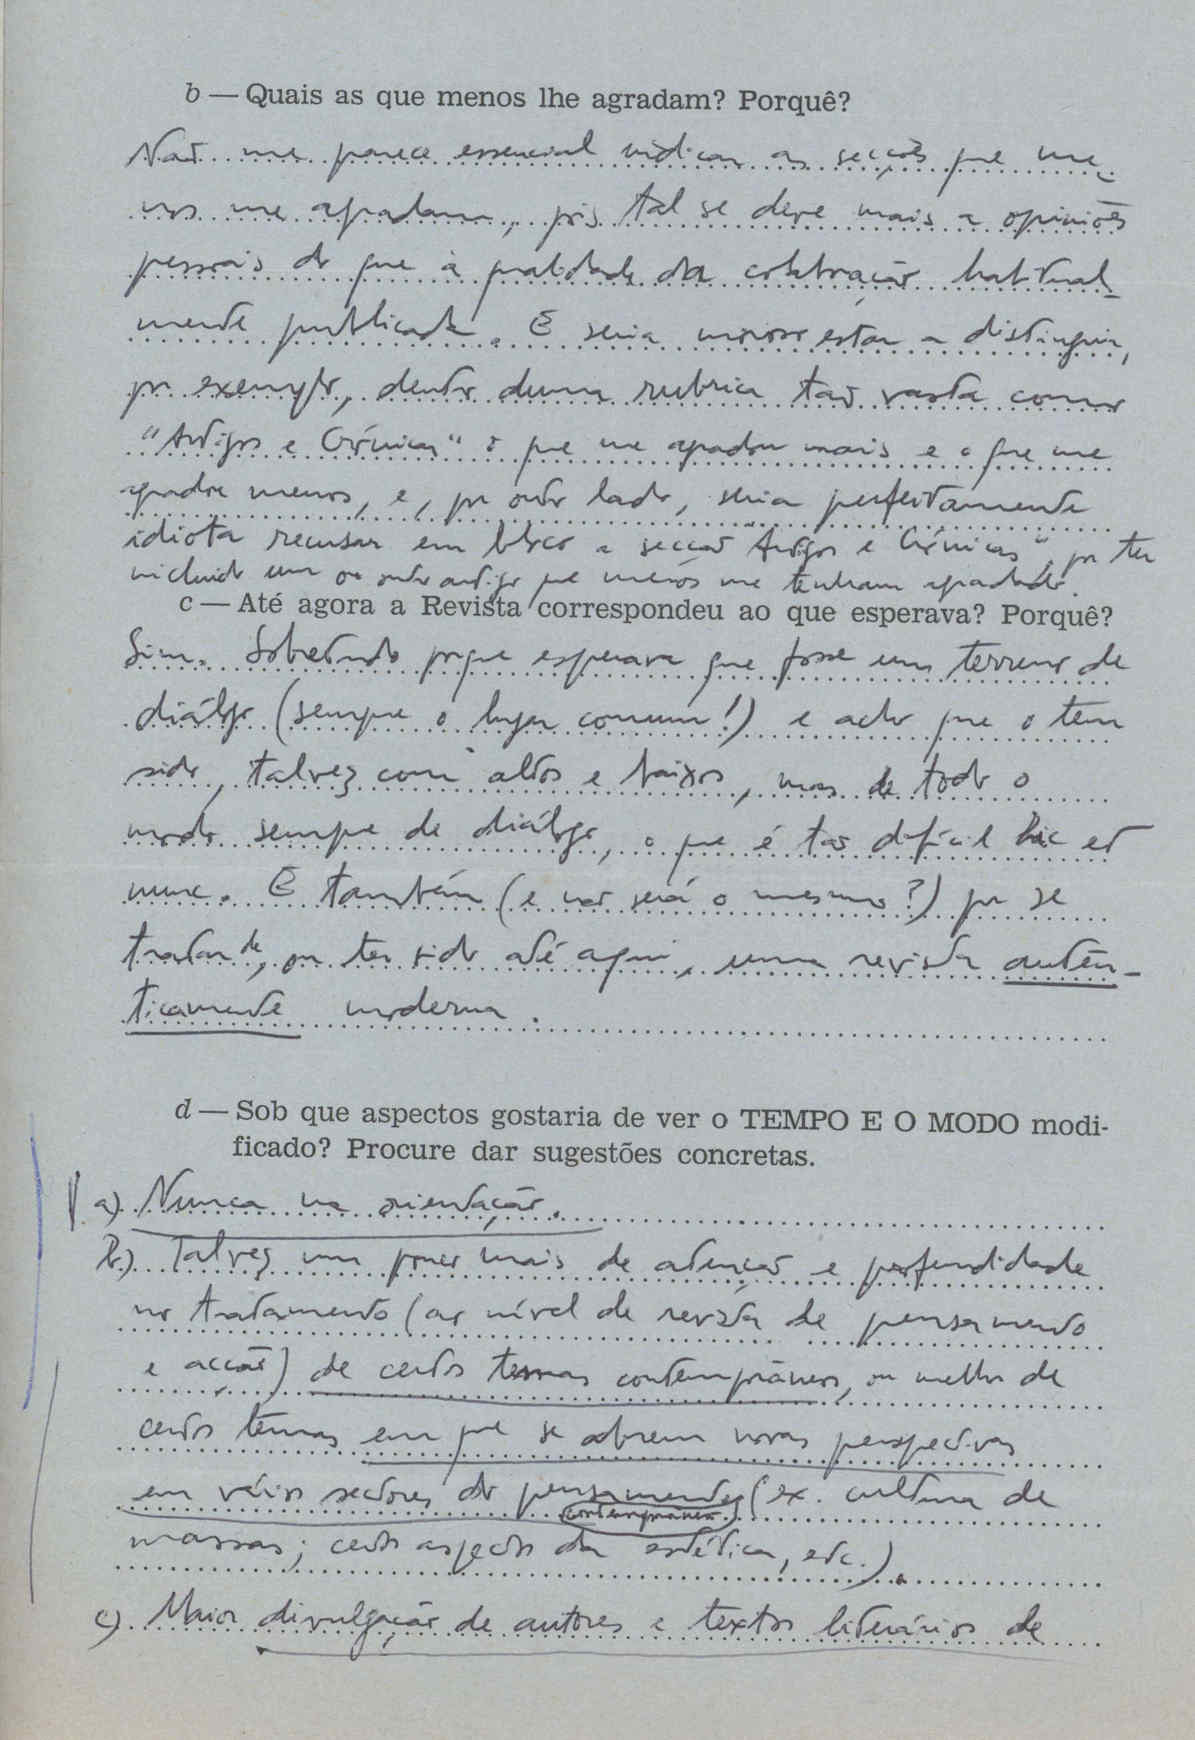 b — Quais as que menos lhe agradam? Porquê?
Não me parece essencial indicar as secções que me-
nos me agradam, pois tal se deve mais a opiniões
pessoais do que à qualidade da colaboração habitual-
mente publicada. E seria moroso estar a distinguir,
por exemplo, dentro duma rubrica tão vasta como
"Artigos e Crónicas" o que me agradou mais e o que me
agradou menos, e, por outro lado, seria perfeitamente
idiota recusar em bloco a secção "Artigos e Crónicas", por ter
incluido um ou outro artigo que menos me tenham agradado.
c — Até agora a Revista correspondeu ao que esperava? Porquê?
Sim. Sobretudo porque esperava que fosse um terreno de
diálogo (sempre o lugar comum!) e acho que o tem
sido, talvez com altos e baixos, mas de todo o
modo sempre de diálogo, o que é tão difícil hic et
nunc. E também (e não será o mesmo?) por se
tratar de, ou ter sido até aqui, uma revista autên-
ticamente moderna.
d — Sob que aspectos gostaria de ver o TEMPO E O MODO modi-
ficado? Procure dar sugestões concretas.
a) Nunca na orientação.
b) Talvez um pouco mais de atenção e profundidade
no tratamento (ao nível de revista de pensamento
e acção) de certos temas contemporâneos, ou melhor de
certos temas em que se abrem novas perspectivas
em vários sectores do pensamento (ex. cultura de
contemporâneo
massas; certos aspectos da estética, etc.).
c) Maior divulgação de autores e textos literários de